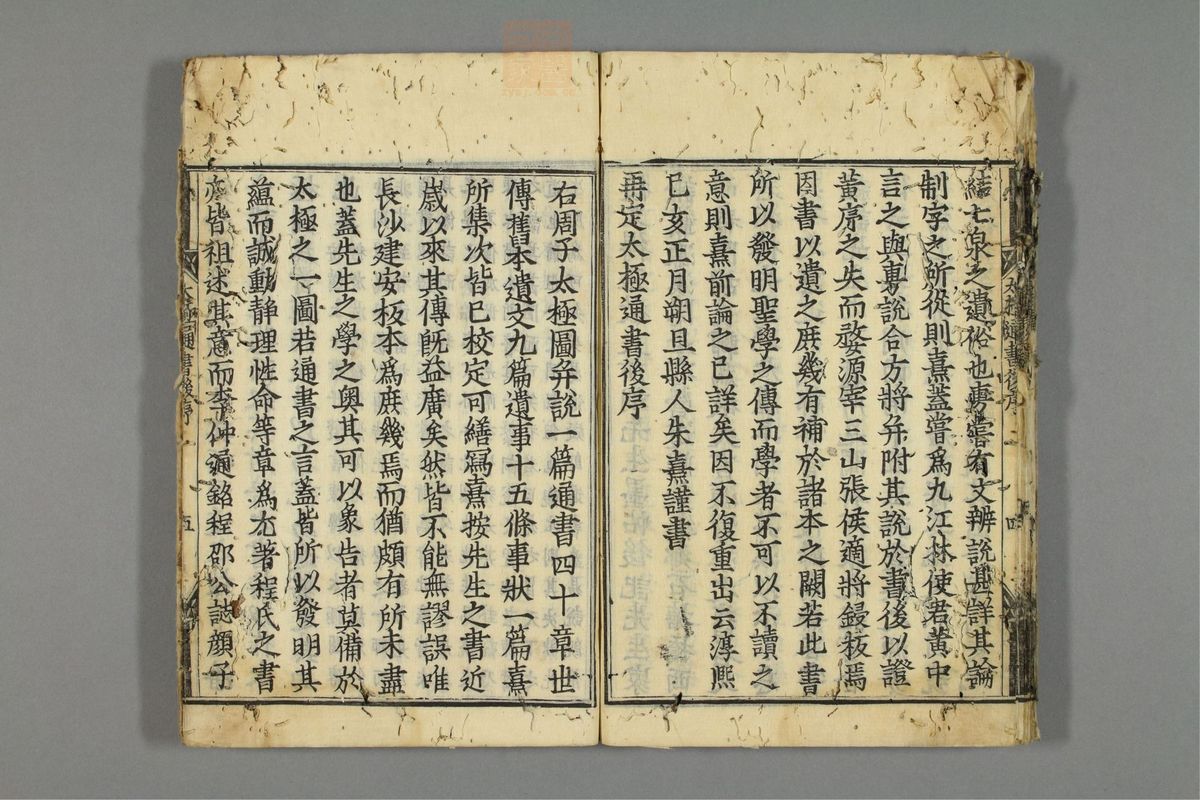 結七泉之遺俗也旉嘗有文辨說甚詳其論
制字之所從則熹蓋嘗爲九江林使君黃中
言之與旉說合方將幷附其說於書後以證
黃序之失而婺源宰三山張侯適將鋟板焉
因書以遺之庶幾有補於諸本之闕若此書
所以發明聖學之傳而學者不可以不讀之
意則熹前論之已詳矣因不復重出云淳熙
己亥正月朔旦縣人朱熹謹書
再定太極通書後序
右周子太極圖幷說一篇通書四十章世
傳舊本遺文九篇遺事十五條事狀一篇熹
所集次皆已校定可繕寫熹按先生之書近
歲以來其傳旣益廣矣然皆不能無謬誤唯
長沙建安板本爲庶幾焉而猶頗有所未盡
也蓋先生之學之奧其可以象告者莫備於
太極之一圖若通書之言蓋皆所以發明其
蘊而誠動靜理性命等章爲尤著程氏之書
亦皆祖述其意而李仲通銘程邵公誌顏子
太極通書後序
五
四